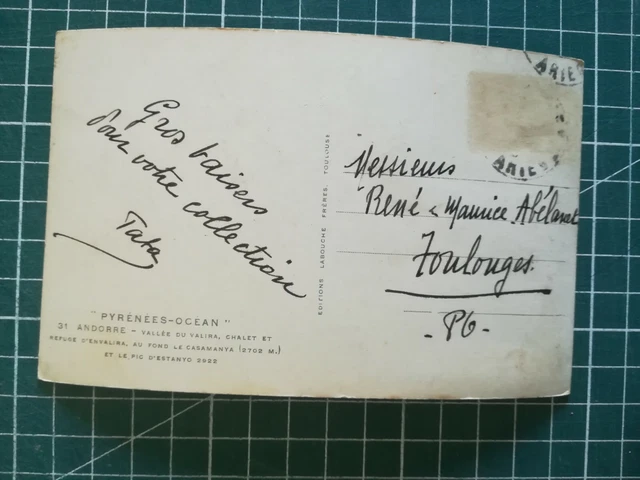 Gros baisers
pour votre collection
Tata
"PYRÉNÉES-OCÉAN"
31 ANDORRE – VALLÉE DU VALIRA, CHALET ET
REFUGE D'ENVALIRA, AU FOND LE CASAMANYA (2702 M.)
ET LE PIC D'ESTANYO 2922
EDITIONS LABOUCHE FRÈRES, TOULOUSE
ARIE
ARIE
Messieurs
René & Maurice Abélanet
Toulouges.
- PO -